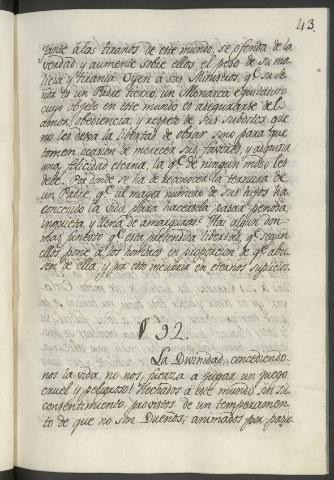 43.
jante á los tiranos de este mundo, se ofenda de la
verdad y aumente sobre ellos el peso de su ma-
licia y tirania. Oyen á sus Ministros, q.e su De-
idad es un Padre tierno, un Monarca equitativo
cuyo objeto en este mundo es asegurarse del
amor, obediencia, y respeto de sus subditos que
no les dexa la libertad de obrar sino para que
tomen ocasion de merecer sus favores, y adquirir
una felicidad eterna, la q.e de ningun modo les
debe. Por donde se ha de reconocer la ternura de
un Padre, q.e al mayor numero de sus hijos ha
concedido la vida para hacersela pasar penosa,
inquieta y llena de amarguras? Hai algun don
mas funesto q.e esta pretendida libertad, q.e segun
ellos pone á los hombres en proporcion de q.e abu-
sen de ella, y por esto incurrir en eternos suplicios.
§ 92.
La Divinidad, concediendo-
nos la vida, no nos fuerza á jugar un juego
cruel y peligroso? Hechados á este mundo sin su
consentimiento, provistos de un temperamen-
to de que no son Dueños; animados por pasio